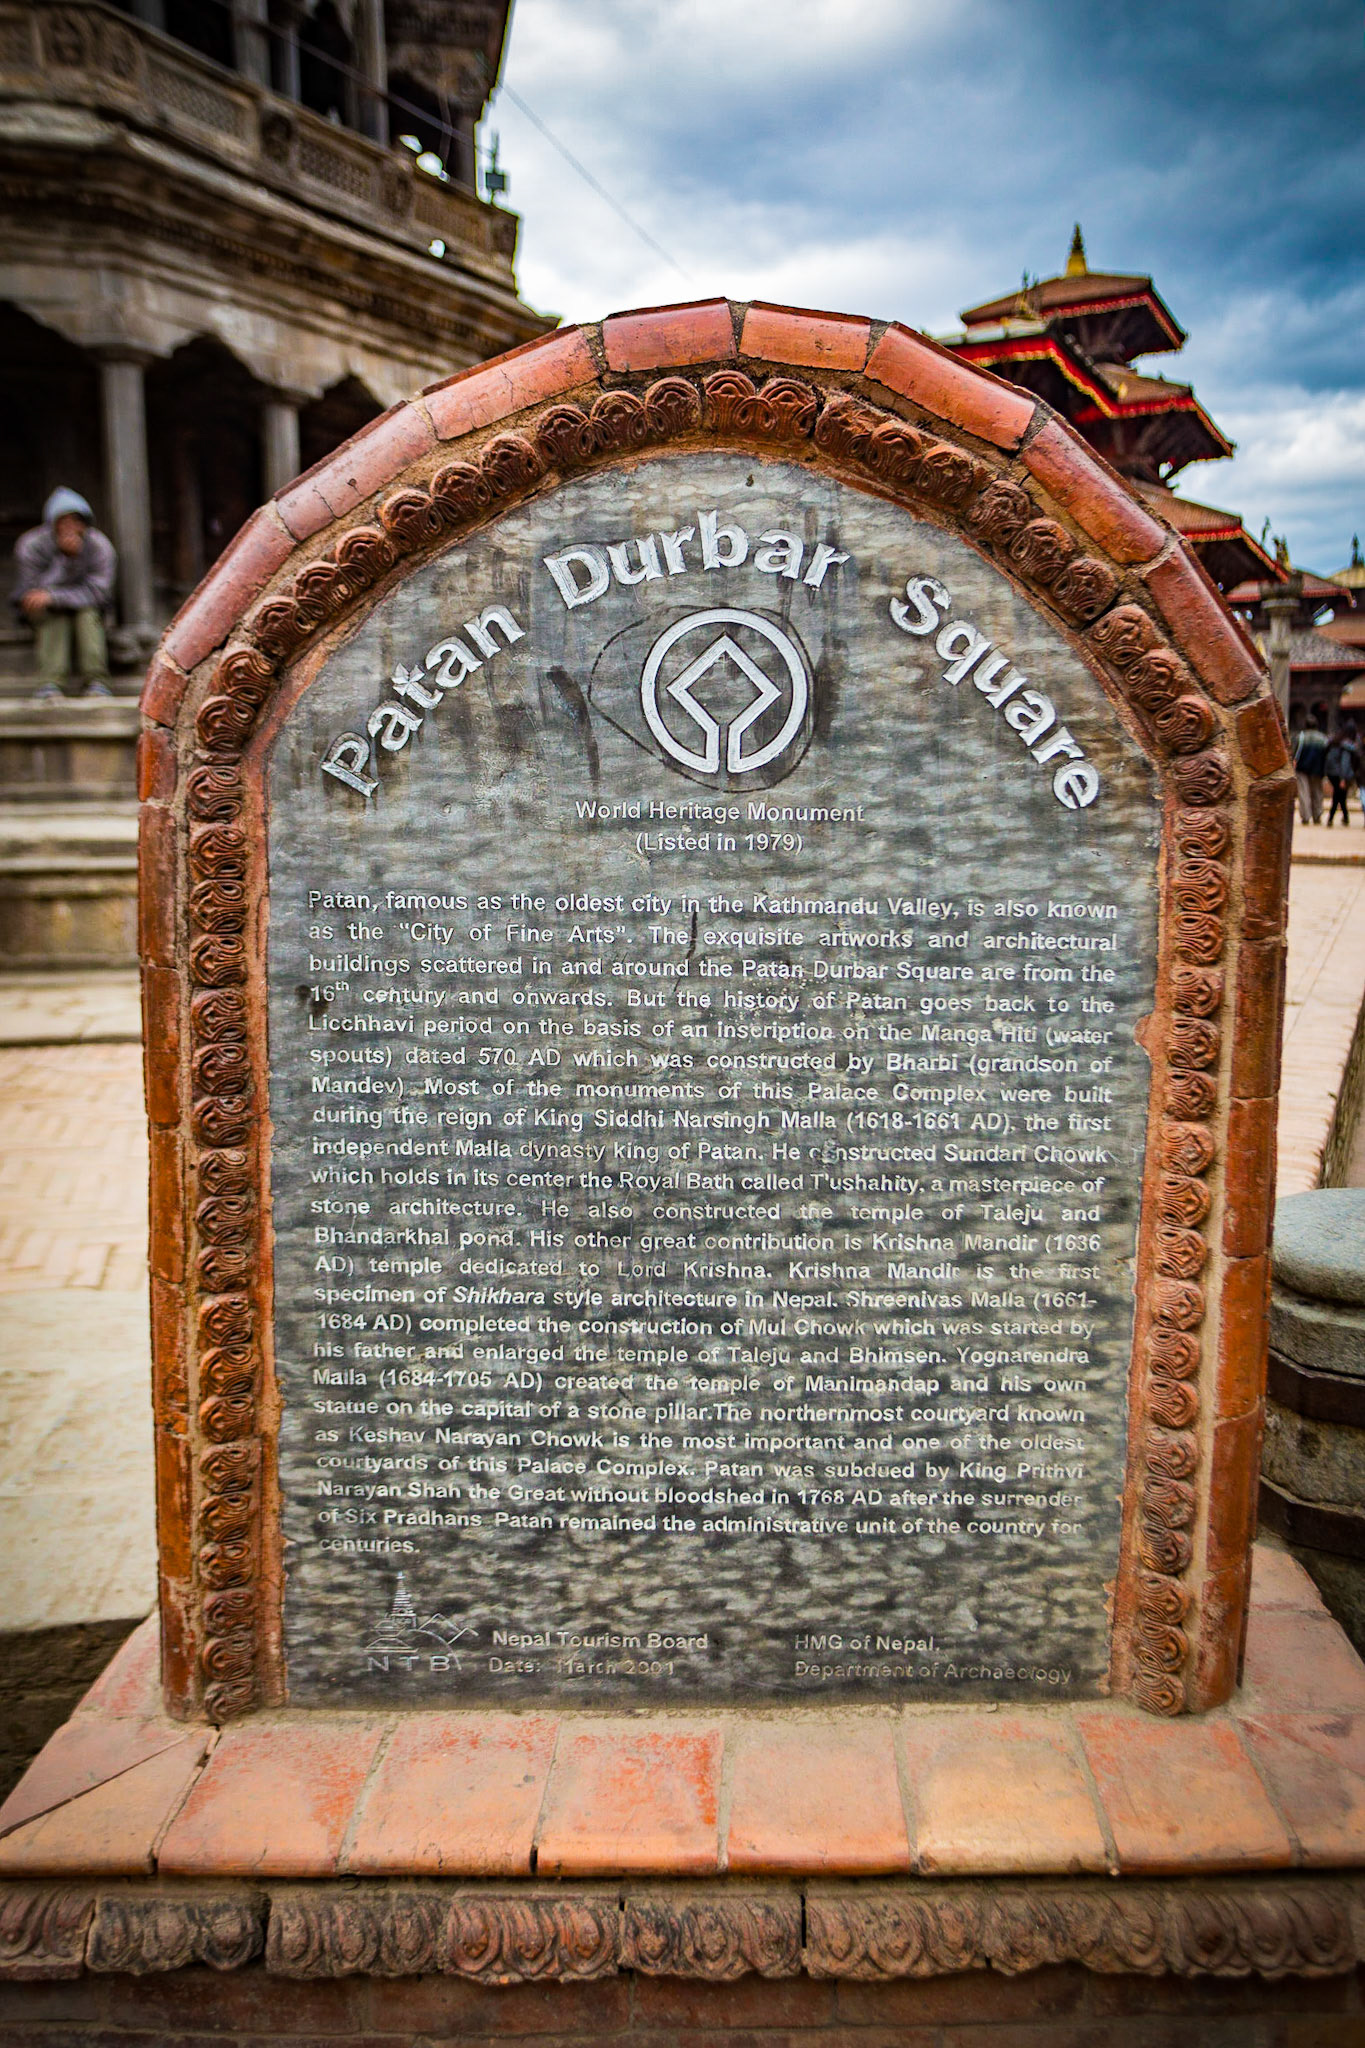 Patan Durbar Square
World Heritage Monument
(Listed in 1979)
Patan, famous as the oldest city in the Kathmandu Valley, is also known
as the "City of Fine Arts". The exquisite artworks and architectural
buildings scattered in and around the Patan Durbar Square are from the
16th century and onwards. But the history of Patan goes back to the
Licchhavi period on the basis of an inscription on the Manga Hiti (water
spouts) dated 570 AD which was constructed by Bharbi (grandson of
Mandev). Most of the monuments of this Palace Complex were built
during the reign of King Siddhi Narsingh Malla (1618-1661 AD), the first
independent Malla dynasty king of Patan. He constructed Sundari Chowk
which holds in its center the Royal Bath called T'ushahity, a masterpiece of
stone architecture. He also constructed the temple of Taleju and
Bhandarkhal pond. His other great contribution is Krishna Mandir (1636
AD) temple dedicated to Lord Krishna. Krishna Mandir is the first
specimen of Shikhara style architecture in Nepal. Shreenivas Malla (1661-
1684 AD) completed the construction of Mul Chowk which was started by
his father and enlarged the temple of Taleju and Bhimsen. Yognarendra
Malla (1684-1705 AD) created the temple of Manimandap and his own
statue on the capital of a stone pillar.The northernmost courtyard known
as Keshav Narayan Chowk is the most important and one of the oldest
courtyards of this Palace Complex. Patan was subdued by King Prithvi
Narayan Shah the Great without bloodshed in 1768 AD after the surrender
of Six Pradhans Patan remained the administrative unit of the country for
centuries.
NTB
Nepal Tourism Board
Date: March 2001
HMG of Nepal,
Department of Archaeology